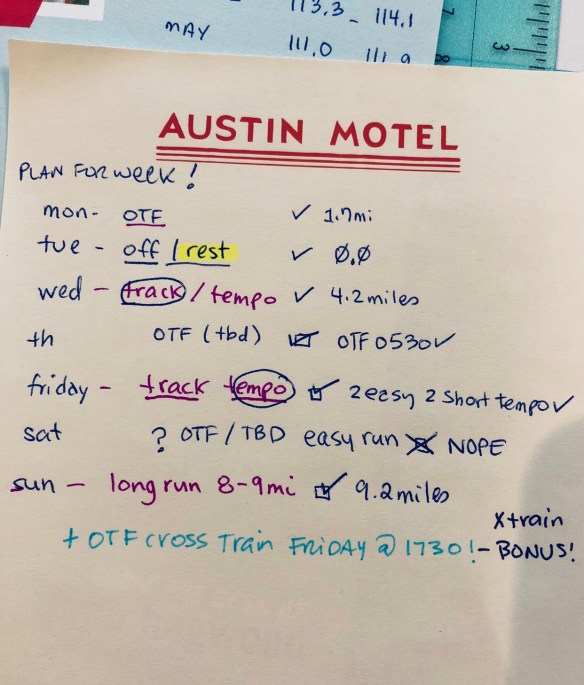 113.3 - 114.1
MAY 111.0 111.9
7
8
3
AUSTIN MOTEL
PLAN FOR week!
mon- OTF ✓ 1.7mi
tue - off / rest ✓ Ø.Ø
wed - track / tempo ✓ 4.2miles
th OTF (tbd) ☑ OTF 0530 ✓
friday - track tempo ☑ 2 easy 2 short tempo ✓
sat ? OTF / TBD easy run ☒ NOPE
sun - long run 8-9mi ☑ 9.2miles
+ OTF cross Train FRIDAY @ 1730! - Xtrain BONUS!